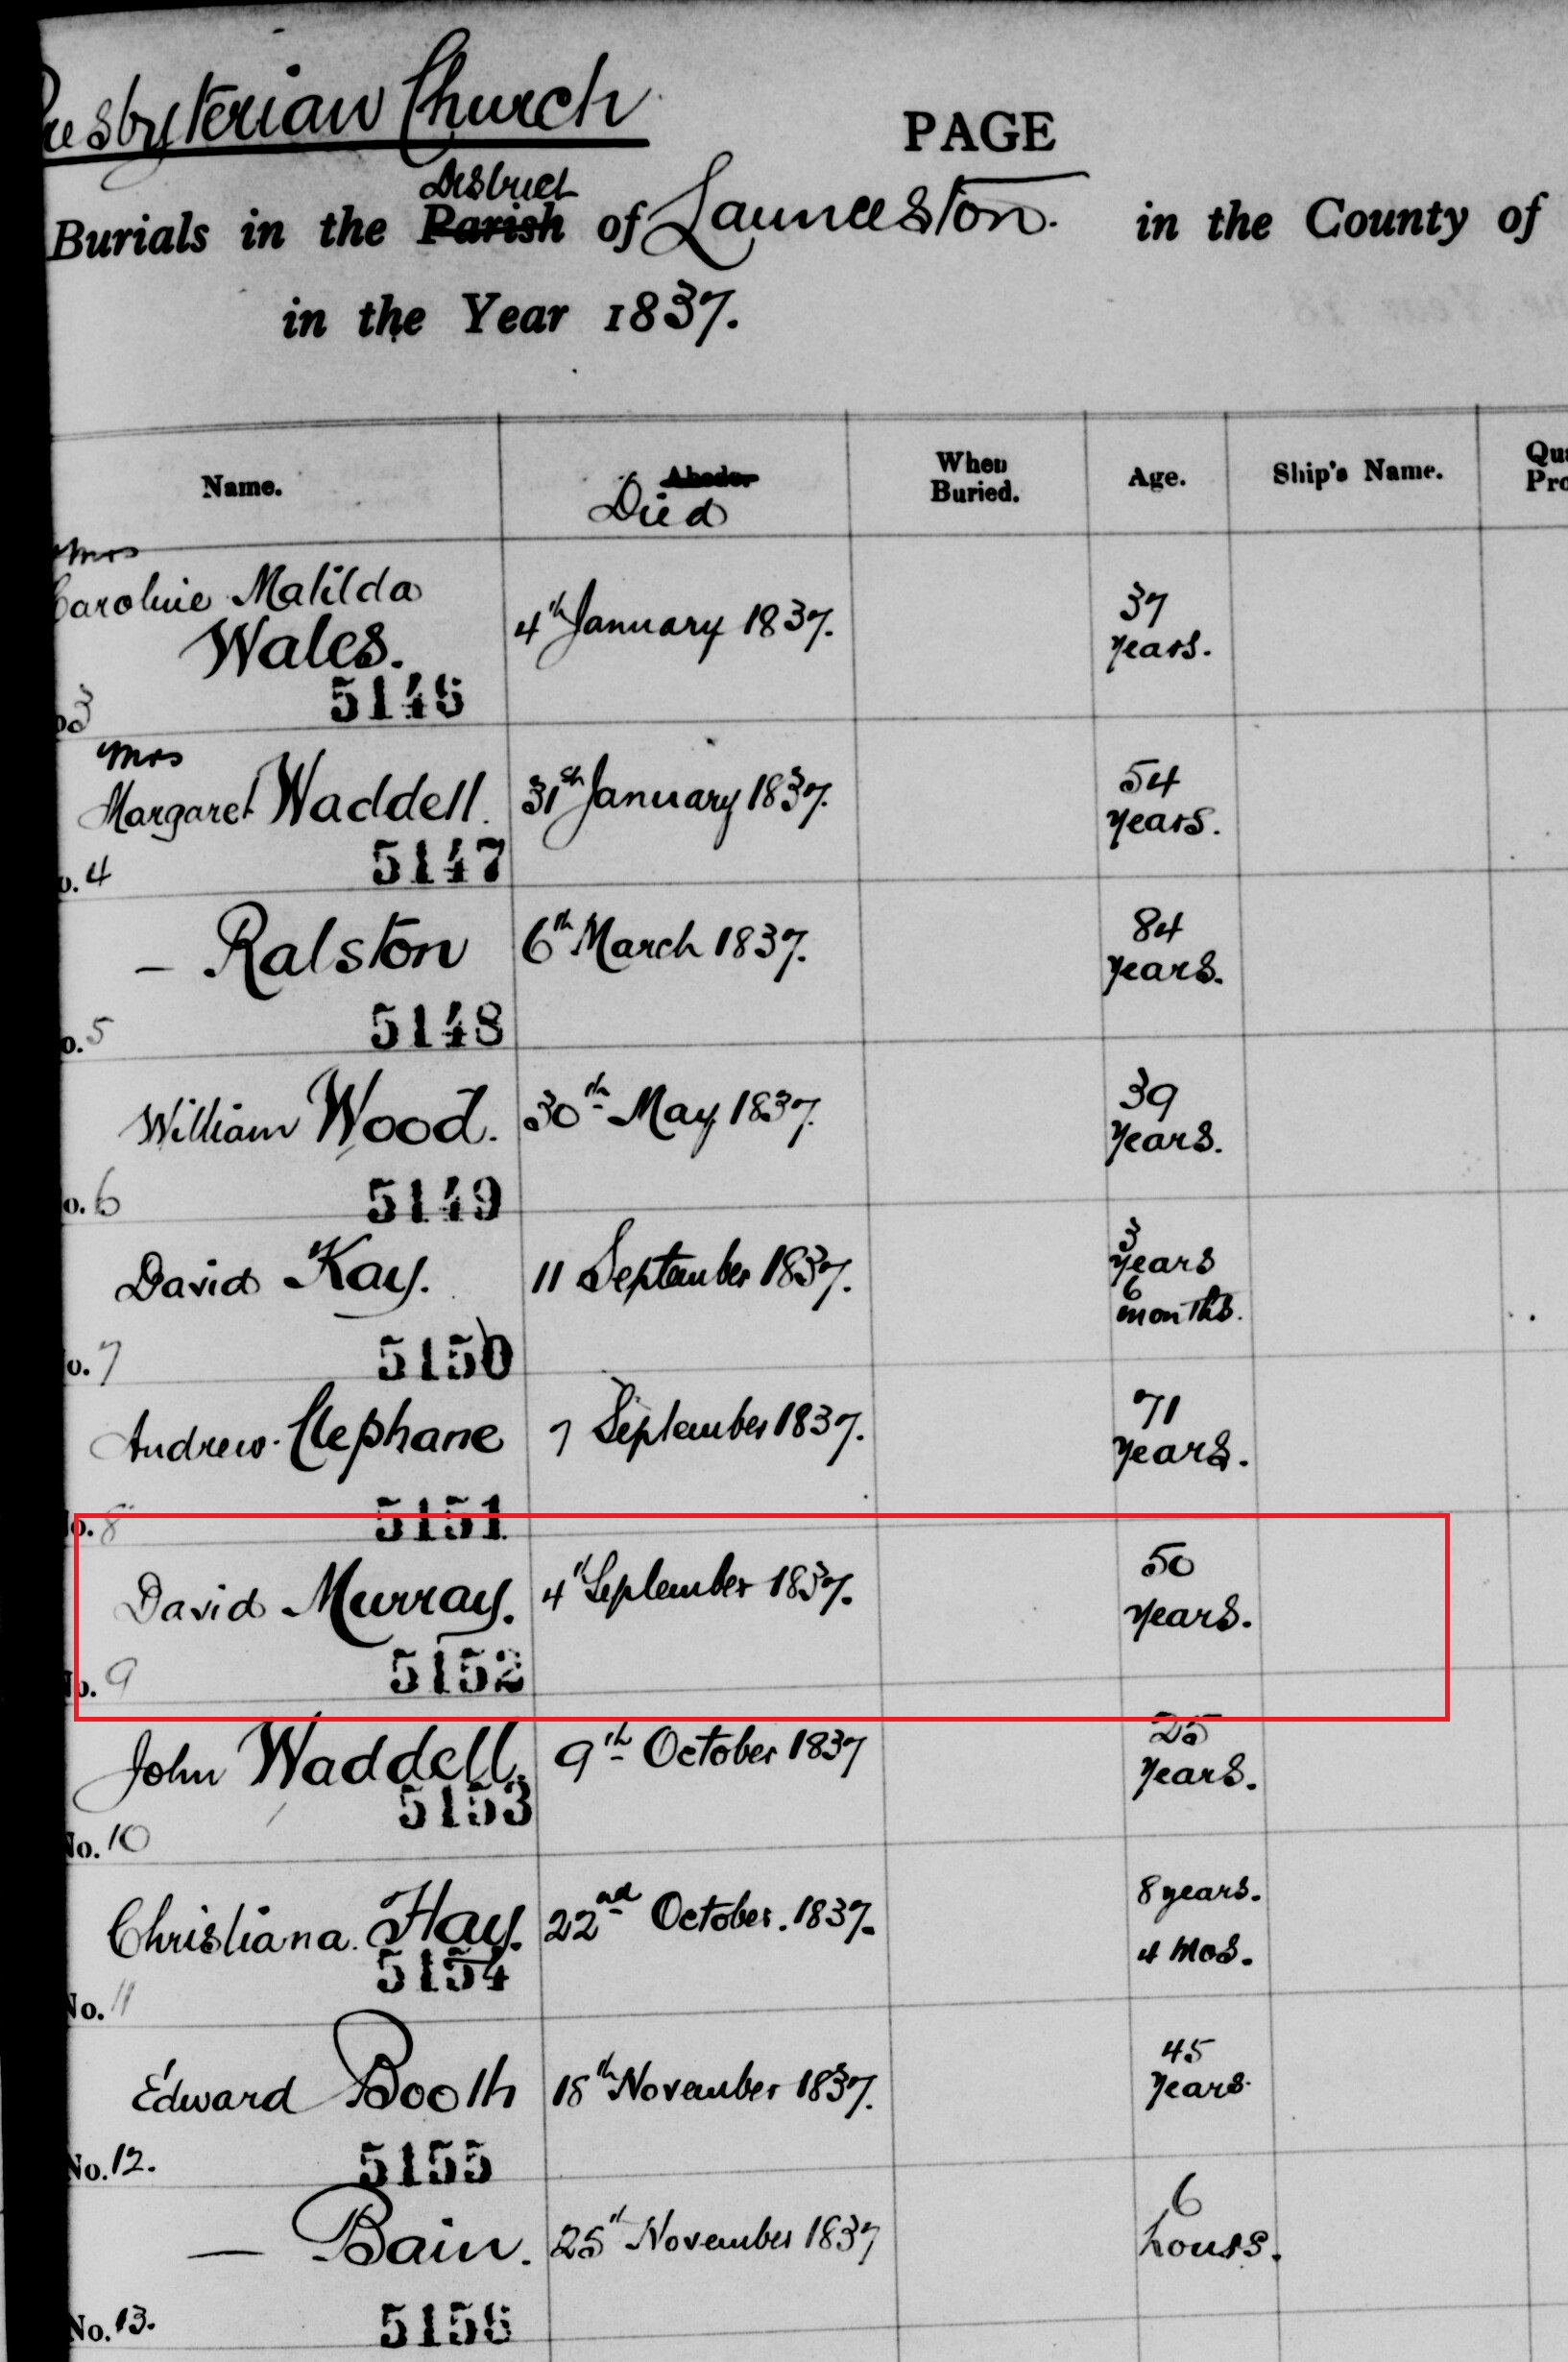 Presbyterian Church
PAGE
District
Burials in the Parish of Launceston. in the County of
in the Year 1837.
Name. Abode. Died When Buried. Age. Ship's Name.
Mrs
Caroline Matilda
Wales. 4th January 1837. 37 years.
5146
No. 3
Mrs
Margaret Waddell. 31st January 1837. 54 years.
5147
No. 4
— Ralston 6th March 1837. 84 years.
5148
No. 5
William Wood. 30th May 1837. 39 years.
5149
No. 6
David Kay. 11 September 1837. 3 years 6 months.
5150
No. 7
Andrew Clephane 7 September 1837. 71 years.
5151
No. 8
David Murray. 4th September 1837. 50 years.
5152
No. 9
John Waddell. 9th October 1837 25 years.
5153
No. 10
Christiana Hay. 22nd October. 1837. 8 years. 4 mos.
5154
No. 11
Edward Booth 18th November 1837. 45 years.
5155
No. 12.
— Bain. 25th November 1837 6 hours.
5156
No. 13.